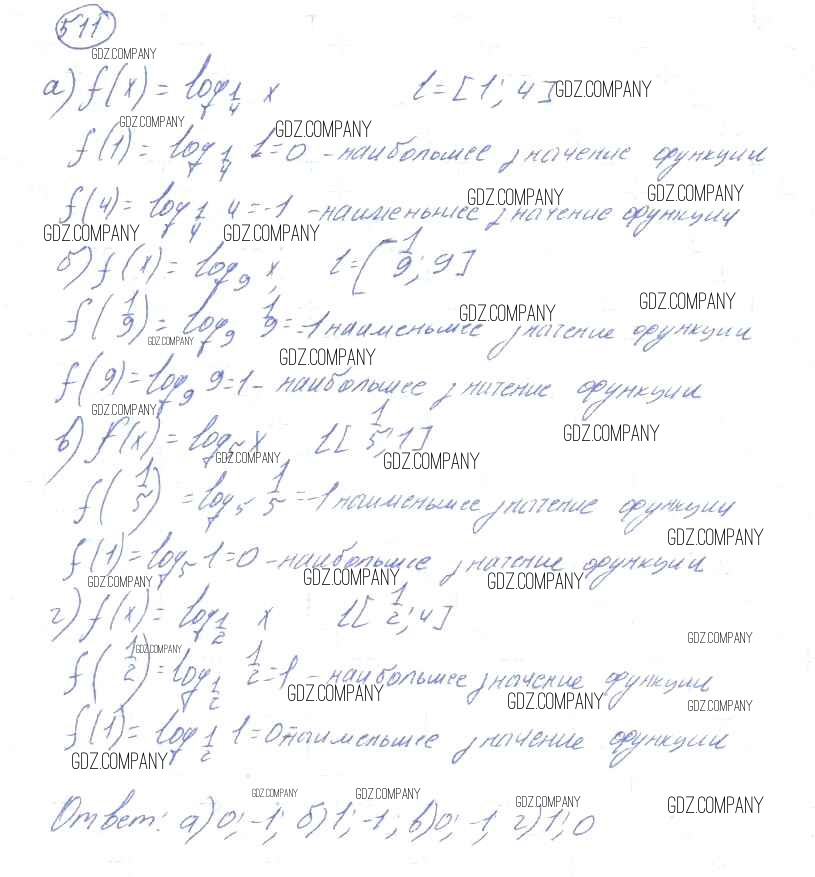 511
GDZ.COMPANY
а) f(x) = log_{1/4} x    l = [1; 4] GDZ.COMPANY
GDZ.COMPANY GDZ.COMPANY
f(1) = log_{1/4} 1 = 0 - наибольшее значение функции
GDZ.COMPANY GDZ.COMPANY
f(4) = log_{1/4} 4 = -1 - наименьшее значение функции
GDZ.COMPANY GDZ.COMPANY
б) f(x) = log_9 x,    l = [1/9; 9]
GDZ.COMPANY GDZ.COMPANY
f(1/9) = log_9 1/9 = -1 наименьшее значение функции
GDZ.COMPANY GDZ.COMPANY
f(9) = log_9 9 = 1 - наибольшее значение функции
GDZ.COMPANY
в) f(x) = log_5 x    l [1/5; 1] GDZ.COMPANY
GDZ.COMPANY GDZ.COMPANY
f(1/5) = log_5 1/5 = -1 наименьшее значение функции
GDZ.COMPANY
f(1) = log_5 1 = 0 - наибольшее значение функции
GDZ.COMPANY GDZ.COMPANY GDZ.COMPANY
г) f(x) = log_{1/2} x    l [1/2; 4]
GDZ.COMPANY GDZ.COMPANY
f(1/2) = log_{1/2} 1/2 = 1 - наибольшее значение функции
GDZ.COMPANY GDZ.COMPANY GDZ.COMPANY
f(1) = log_{1/2} 1 = 0 наименьшее значение функции
GDZ.COMPANY
GDZ.COMPANY GDZ.COMPANY GDZ.COMPANY GDZ.COMPANY
Ответ: а) 0; -1; б) 1; -1; в) 0; -1, г) 1; 0